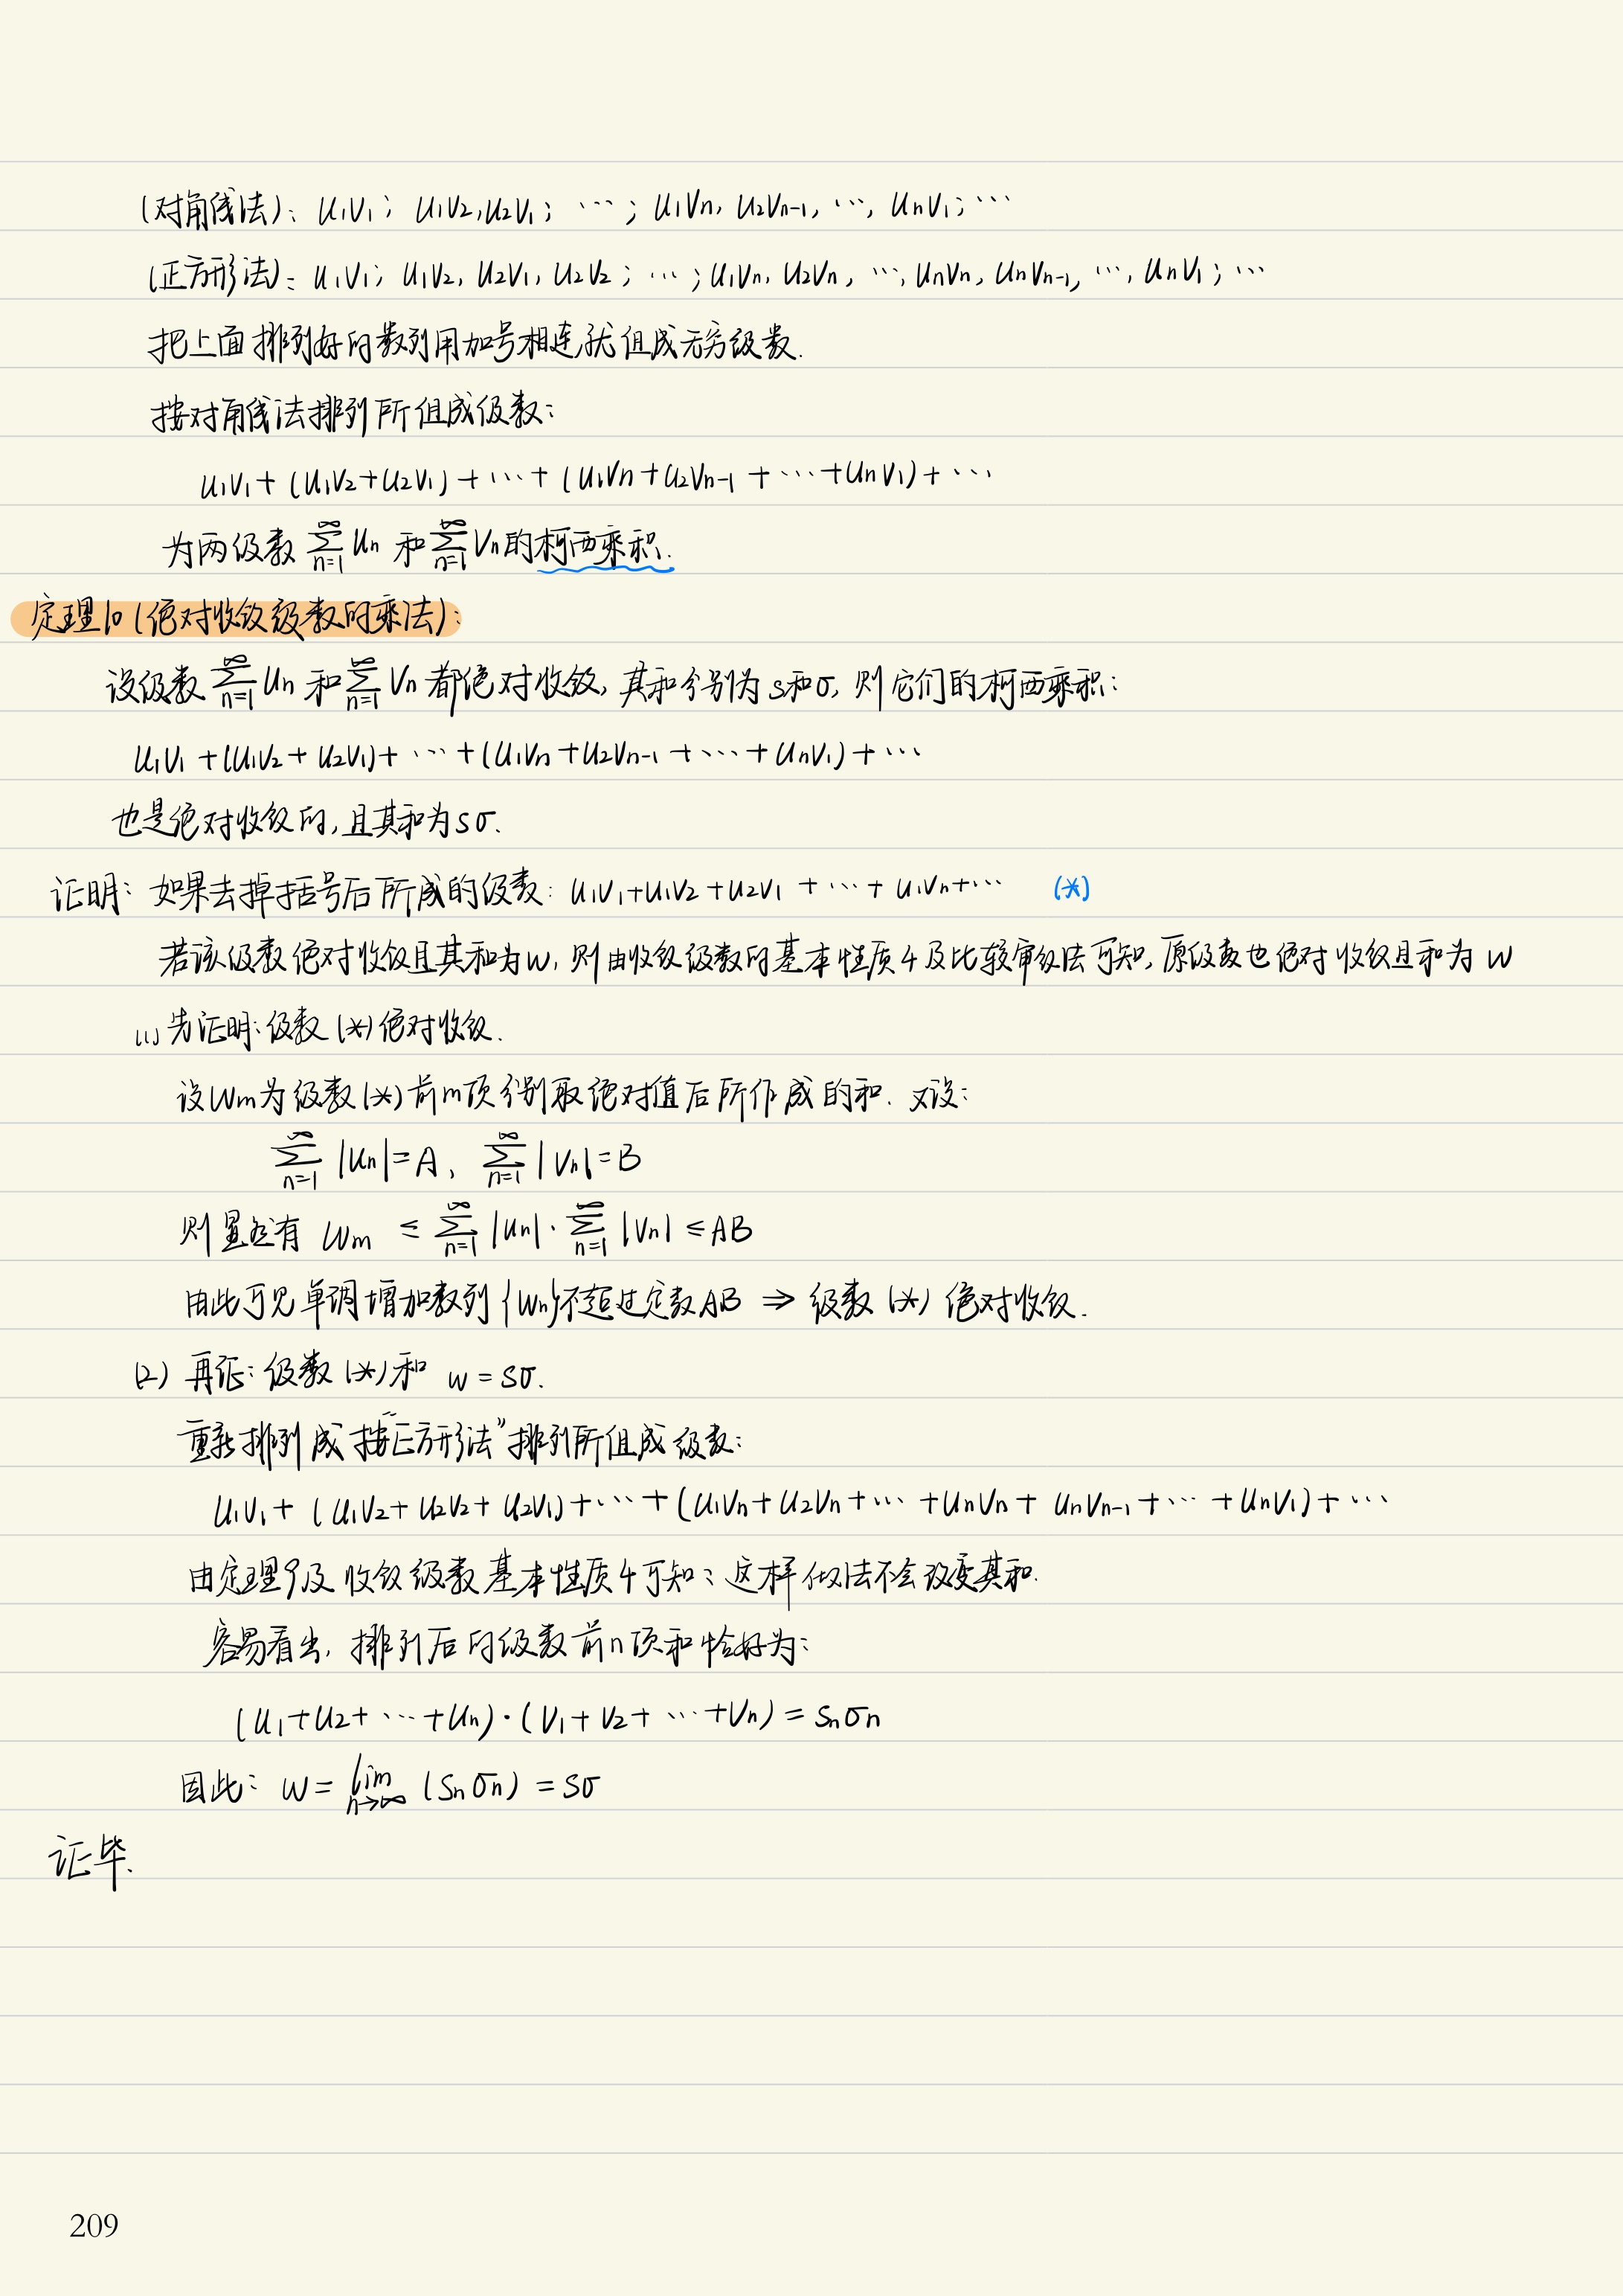 (对角线法): u₁v₁; u₁v₂, u₂v₁; ⋯; u₁vₙ, u₂vₙ₋₁, ⋯, uₙv₁; ⋯
(正方形法): u₁v₁; u₁v₂, u₂v₁, u₂v₂; ⋯; u₁vₙ, u₂vₙ, ⋯, uₙvₙ, uₙvₙ₋₁, ⋯, uₙv₁; ⋯
把上面排列好的数列用加号相连就组成无穷级数.
按对角线法排列所组成级数:
u₁v₁ + (u₁v₂+u₂v₁) + ⋯ + (u₁vₙ+u₂vₙ₋₁+⋯+uₙv₁) + ⋯
为两级数 ∑_{n=1}^{∞} uₙ 和 ∑_{n=1}^{∞} vₙ 的柯西乘积.
定理10 (绝对收敛级数的乘法):
设级数 ∑_{n=1}^{∞} uₙ 和 ∑_{n=1}^{∞} vₙ 都绝对收敛, 其和分别为 s和σ, 则它们的柯西乘积:
u₁v₁ + (u₁v₂+u₂v₁) + ⋯ + (u₁vₙ+u₂vₙ₋₁+⋯+uₙv₁) + ⋯
也是绝对收敛的, 且其和为sσ.
证明: 如果去掉括号后所成的级数: u₁v₁+u₁v₂+u₂v₁+⋯+u₁vₙ+⋯ (*)
若该级数绝对收敛且其和为w, 则由收敛级数的基本性质4及比较审敛法可知, 原级数也绝对收敛且和为 w
(1) 先证明: 级数 (*) 绝对收敛.
设wₘ为级数(*)前m项分别取绝对值后所作成的和. 又设:
∑_{n=1}^{∞} |uₙ| = A, ∑_{n=1}^{∞} |vₙ| = B
则显然有 wₘ ≤ ∑_{n=1}^{∞} |uₙ| · ∑_{n=1}^{∞} |vₙ| ≤ AB
由此可见单调增加数列{wₙ}不超过定数AB ⇒ 级数 (*) 绝对收敛.
(2) 再证: 级数(*)和 w = sσ.
重新排列成按“正方形法”排列所组成级数:
u₁v₁ + (u₁v₂+u₂v₂+u₂v₁) + ⋯ + (u₁vₙ+u₂vₙ+⋯+uₙvₙ+uₙvₙ₋₁+⋯+uₙv₁) + ⋯
由定理9及收敛级数基本性质4可知: 这样做法不会改变其和.
容易看出, 排列后的级数前n项和恰好为:
(u₁+u₂+⋯+uₙ)·(v₁+v₂+⋯+vₙ) = sₙσₙ
因此: w = lim_{n→∞} (sₙσₙ) = sσ
证毕.
209